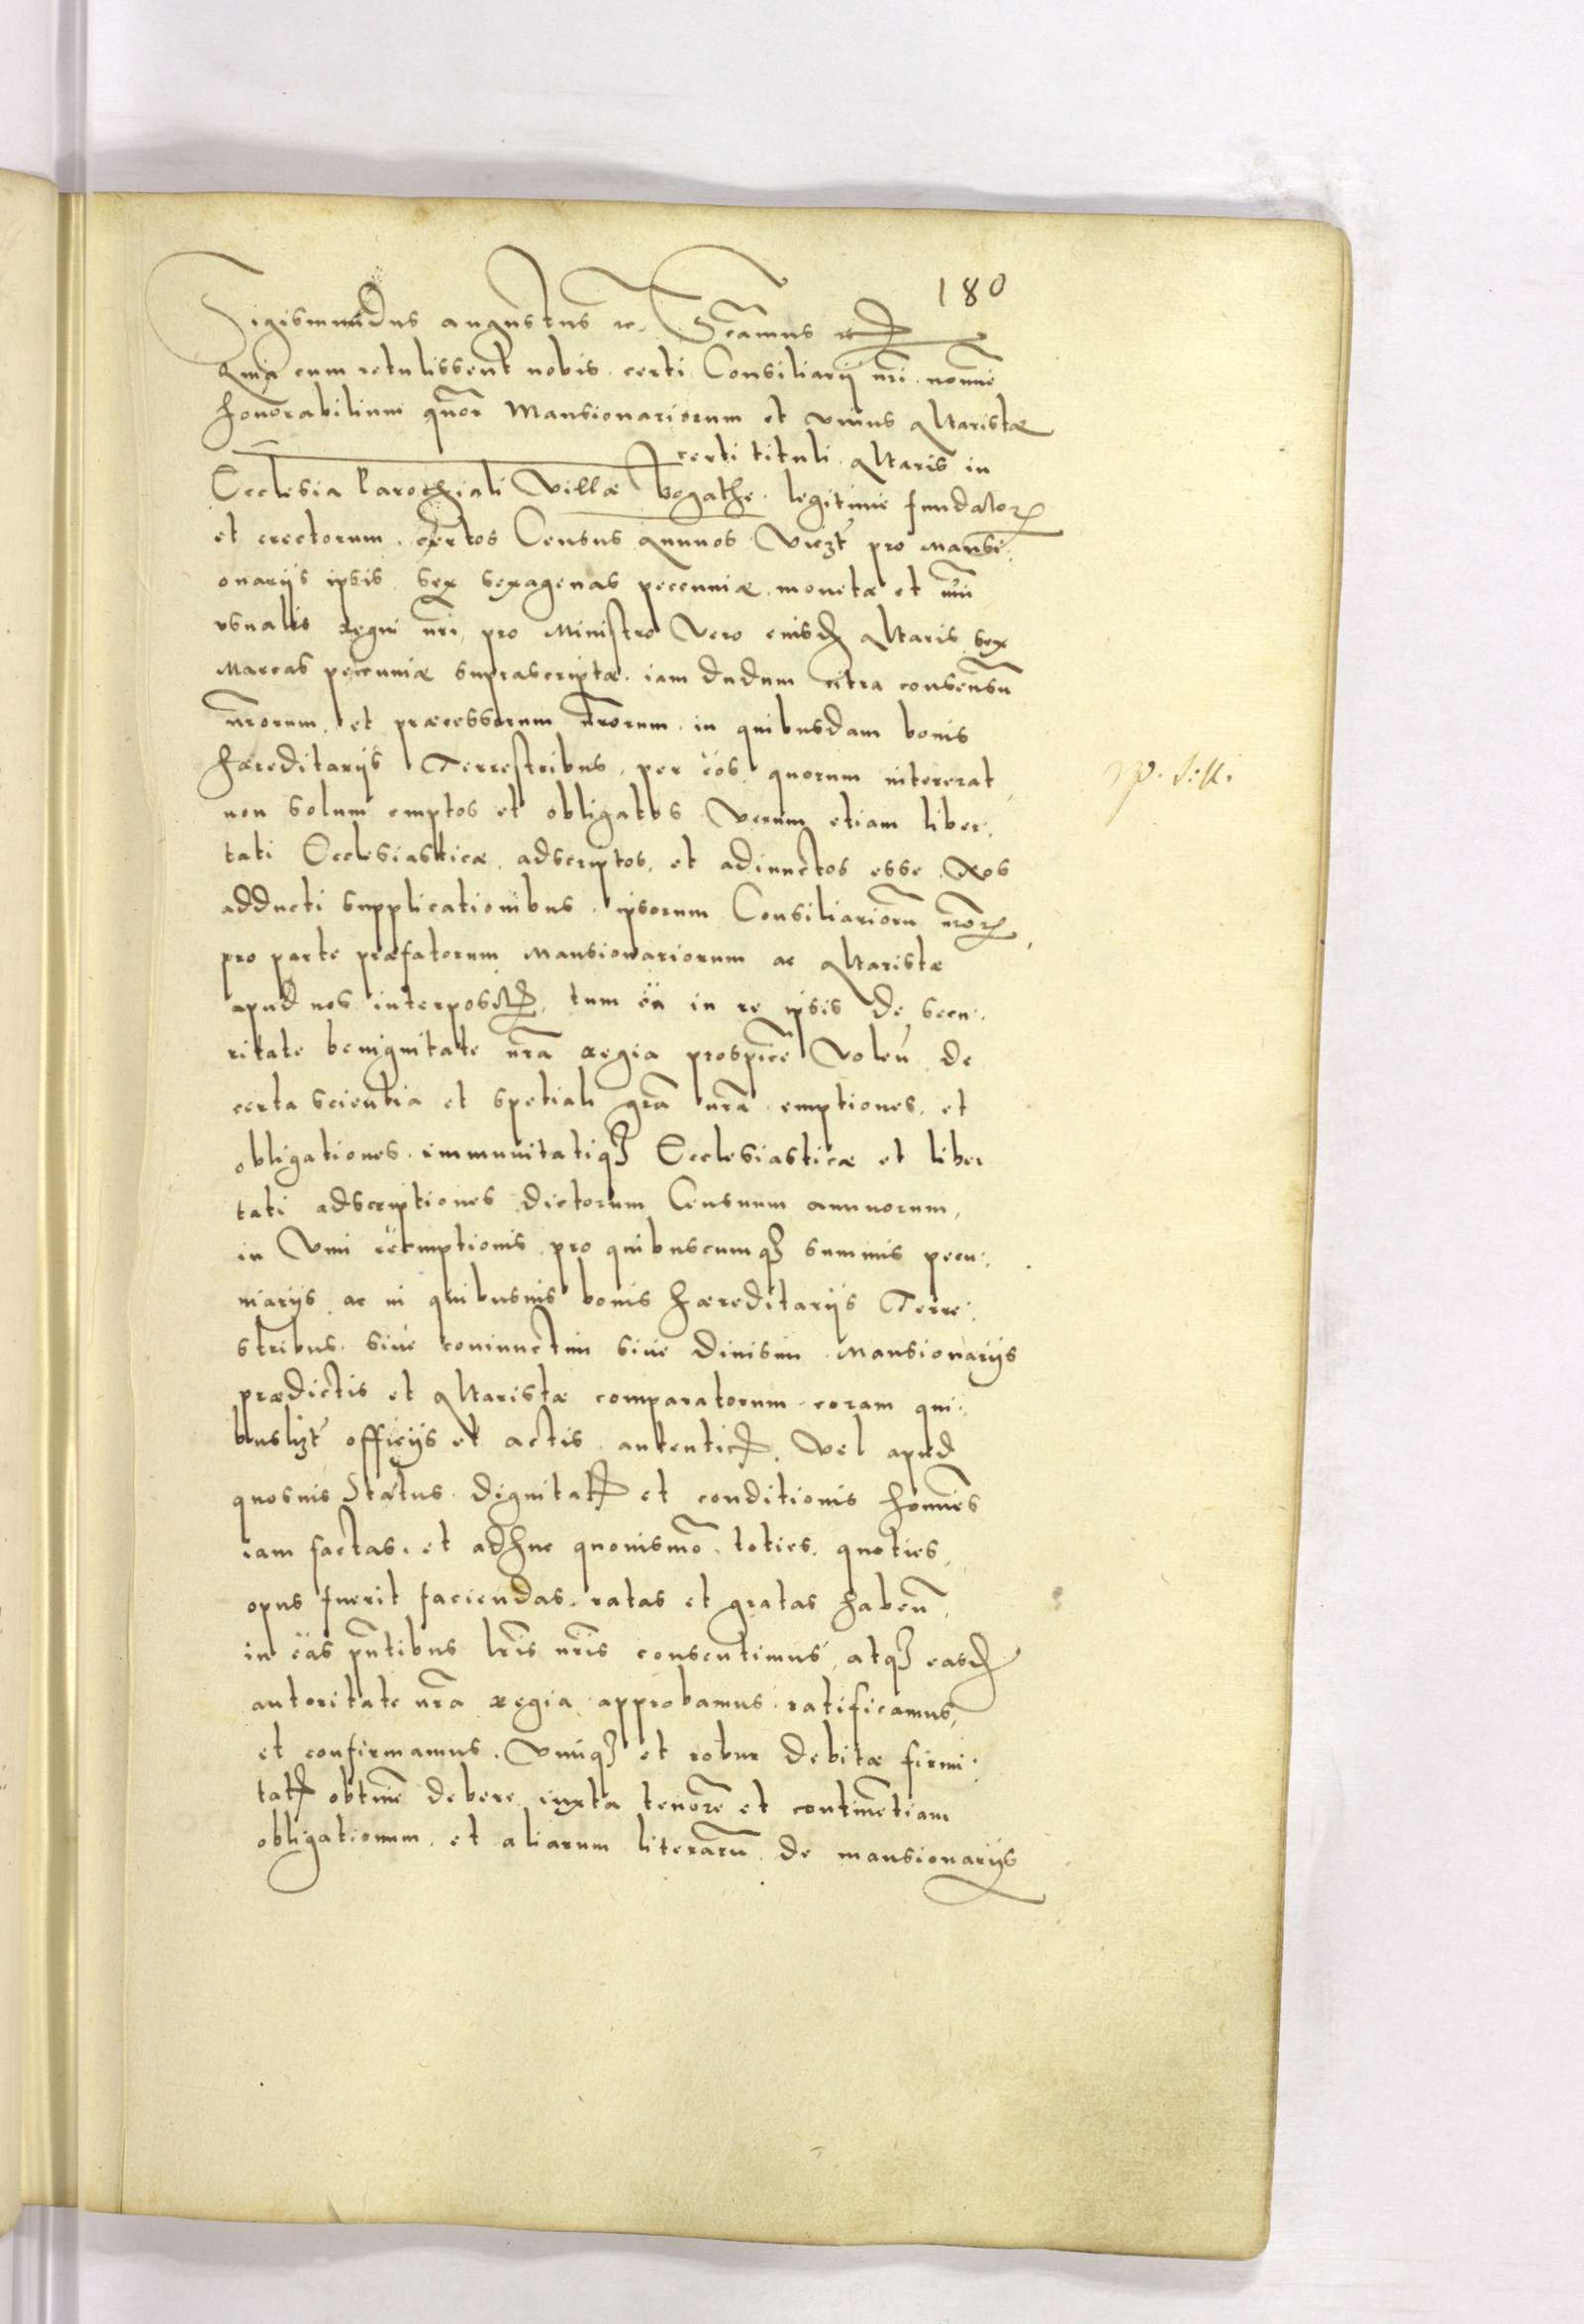 180
Sigismundus augustus rc. Sctamus rc
Quia cum retulissent nobis certi Consiliarij nri nomine
honorabilium qtuor Mansionariorum et vnius altaristæ
certi tituli altaris in
Ecclesia Parochiali Villæ bogathe legitime fundator
et erectorum certos Census annuos Vīczt pro mansi:
onarijs ipsis sex sexagenas pecuniæ monetæ et nūi
vsualis Regni nri, pro Ministro Vero eiusd altaris sex
Marcas pecuniæ suprascriptæ iam dudum citra consensū
nrorum et præcessorum nrorum in quibusdam bonis
hæreditarijs Terrestribus per eos quorum intererat
non solum emptos et obligatos verum etiam liber:
tati Ecclesiasticæ adscriptos et adiunctos esse Nos
adducti supplicationibus ipsorum Consiliariorū nror
pro parte præfatorum mansionariorum ac altaristæ
apud nos interposit, tum ēa in re ipsis de secu:
ritate benignitate nra Regia prospicē volen de
certa scientia et spetiali gra nra emptiones et
obligationes immunitatiq Ecclesiasticæ et liber
tati adscriptiones dictorum Censuum annuorum,
in Vim reemptionis pro quibuscumq summis pecu:
niarijs ac in quibusuis bonis hæreditarijs Terre:
stribus siue coniunctim siue diuisim Mansionarijs
prædictis et altaristæ comparatorum coram qui:
buslzt officijs et actis autentic, vel apud
quosuis Status dignitat et conditionis homines
iam factas et adhuc quouismo toties quoties
opus fuerit faciendas ratas et gratas haben
in eas pntibus lris nris consentimus, atq easd
autoritate nra Regia approbamus ratificamus,
et confirmamus. Vimq et robur debitæ firmi:
tat obtinē debere iuxta tenorē et continētiam
obligationum et aliarum literarū de mansionarijs